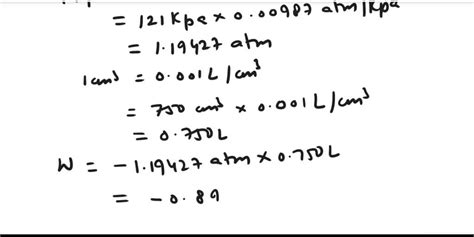 = 121 Kpa × 0.00987 atm/Kpa
= 1.19427 atm
1 cm³ = 0.001 L/cm³
= 750 cm³ × 0.001 L/cm³
= 0.750L
W = - 1.19427 atm × 0.750L
= - 0.89